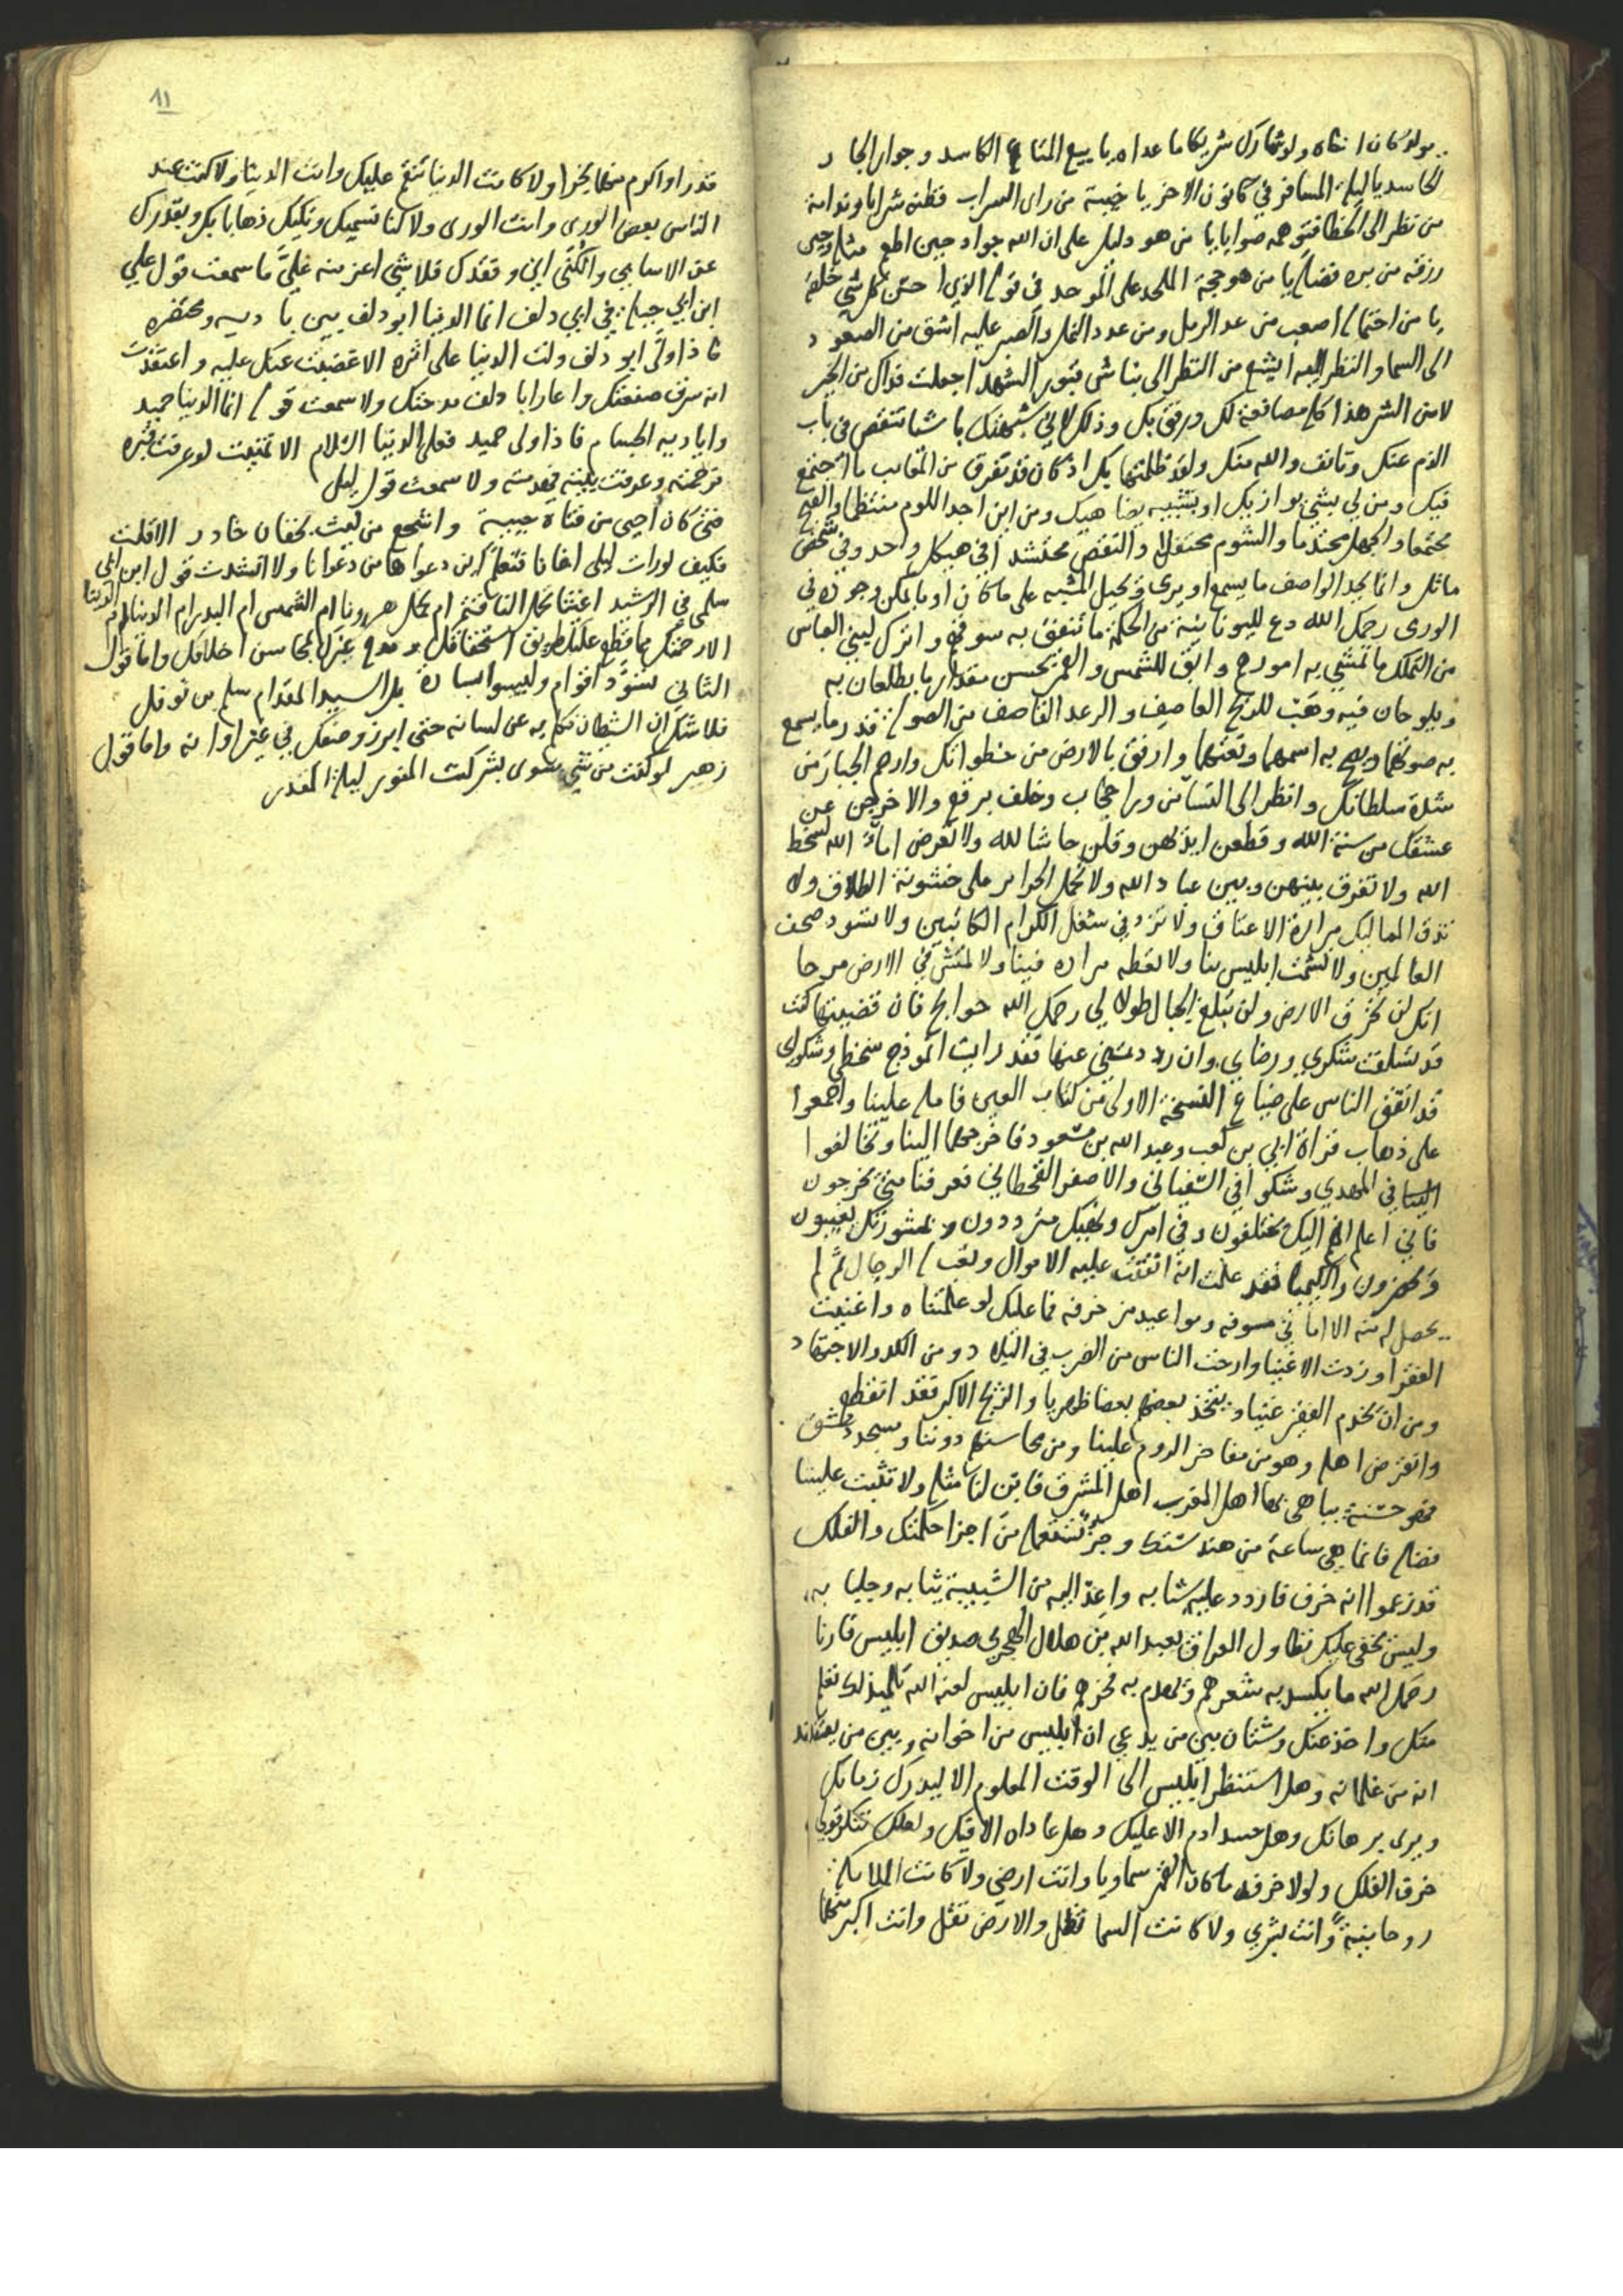 مولد كان اخاه ولو شارك شريكا ما عداه يا بيع المتاع الكاسد وجوار الجار
الحاسد يا ليلة المسافر في كانون الاخر يا خيبة من راى السراب فظنه شرابا وندامة
من نظر الى الخطا فتوهمه صوابا يا من هو دليل على ان الله جواد حين اطعم مثله وحين
رزقه من بره فضله يا من هو حجة الملحد على الموحد في قوله الذي احسن كل شي خلقه
يا من احتماله اصعب من عد الرمل ومن عدد النمل والصبر عليه اشق من الصعود
الى السما والنظر اليه ابشع من النظر الى نباش قبور الشهدا جعلت فداك من الخير
لا من الشر هذا كله مصانعة لك ورفق بك وذلك لاني شبهتك باشيا تنقص في باب
الذم عنك وتانف والله منك ولقد ظلمتها بك اذ كان قد تفرق من المعايب ما اجتمع
فيك ومن لي بشي يوازيك او بشبيه يضاهيك ومن اين اجد اللوم منتظما والقبح
مجتمعا والجهل محتدما والشوم محتفلا والنقص محتشدا في هيكل واحد وفي شخص
ماثل وانما يجد الواصف ما يسمع او يرى ويحيل المشبه على ما كان او ما يمكن وجوده في
الورى رحمك الله دع لليونانيين من الحكمة ما تنفق به سوقهم واترك لبني العباس
من التملك ما تمشي به امورهم وابق للشمس والقمر من الحسن مقدار ما يطلعان به
ويلوحان فيه وهب للريح العاصف والرعد القاصف من الصولة قدر ما يسمع
به صوتهما ويهج به اسمهما وتعنهما وارفق بالارض من خطواتك وارحم الجبار من
شدة سلطانك وانظر الى النسا من ورا حجاب وخلف برقع والا خرجن عن
عشقك من سنة الله وقطعن ايديهن وقلن حاشا لله ولا تعرض اماء الله لسخط
الله ولا تفرق بينهن وبين عباد الله ولا تحمل الحراير على خشونة الطلاق ولا
تذق المماليك مرارة الاعتاق ولا تزد في شغل الكرام الكاتبين ولا تسود صحف
العالمين ولا تشمت ابليس بنا ولا تعطه مراده فينا ولا تمش في الارض مرحا
انك لن تخرق الارض ولن تبلغ الجبال طولا لي رحمك الله حوايج فان قضيتها كنت
قد تسلفت شكري ورضاي وان رددتني عنها فقد رايت انموذج سخطي وشكواي
قد اتفق الناس على ضياع النسخة الاولى من كتاب العين فامله علينا واجمعوا
على ذهاب قراة ابي بن كعب وعبد الله بن مسعود فاخرجهما الينا وتخالفوا
في المهدي وشكوا في السفياني والاصفر القحطاني فعرفنا متى يخرجون
فاني اعلم انهم اليك يختلفون وفي امرك ونهيك مترددون وبمشورتك يغيبون
ويحضرون والكيميا فقد علمت انه انفقت عليه الاموال وتعب له الرجال ثم لم
يحصل له منه الا اماني مسوفة ومواعيد مزخرفة فما عليك لو علمتناه واغنيت
الفقرا وزدت الاغنيا وارحت الناس من الضرب في البلاد ومن الكد والاجتهاد
ومن ان يخدم الفقير غنيا ويتخذ بعضهم بعضا ظهريا والزيج الاكبر فقد انقطع
وانقرض اهله وهو من مفاخر الروم علينا ومن محاسنهم دوننا ومسجد دمشق
فهو حسنة يباهى بها اهل المغرب اهل المشرق فابن لنا مثله ولا تثبت علينا
فضله فانما هي ساعة من هندستك وجز تستعمله من اجزا حكمتك والفلك
قد زعموا انه خرف فاردد عليه شبابه واعد اليه من الشبيبة ثيابه وجلبابه
وليس يخفى عليك تطاول العراق بعبد الله بن هلال الهجري صديق ابليس فارنا
رحمك الله ما يكسد به شعرهم ويهدم به فخرهم فان ابليس لعنه الله تلميذك تعلم
منك واخذ عنك وشتان بين من يدعي ان ابليس من اخوانه وبين من يعتقد
انه من غلمانه وهل استنظر ابليس الى الوقت المعلوم الا ليدرك زمانك
ويرى برهانك وهل حسد ادم الا عليك وهل عاداه الا فيك ولعلك تنكر قولي
خرف الفلك ولولا خرفه ما كان القمر سماويا وانت ارضي ولا كانت الملايكة
روحانية وانت بشري ولا كانت السما تظل والارض تقل وانت اكبر منهما
١١
قدرا واكرم منهما نجرا ولا كانت الدنيا تنقم عليك وانت الدنيا ولا كنت عند
الناس بعض الورى وانت الورى ولا كنا نسميك ونكنيك ذهابا بك وبقدرك
عن الاسامي والكنى ابي وفقدك فلا شي اعز منه علي ما سمعت قول علي
ابن جبلة في ابي دلف انما الدنيا ابو دلف بين باديه ومحتضره
فاذا ولى ابو دلف ولت الدنيا على اثره الا غضبت عنك عليه واعتقدت
انه سرق صفتك واعار ابا دلف مدحتك ولا سمعت قوله انما الدنيا حميد
واياديه الجسام فاذا ولى حميد فعلى الدنيا السلام الا تمنيت لو عرفت قبره
فرجمته وعرفت بيته فهدمته ولا سمعت قول ليلى
فتى كان احيى من فتاة حيية واشجع من ليث بخفان خادر الا قلت
فكيف لو رات ليلى اخانا فتعلم اين دعواها من دعوانا ولا انشدت قول ابن ابي
سلمى في الرشيد
الا رحمتك مما قطع عليك طريق استحقاقك ومدح غيرك بمحاسن اخلاقك واما قول
الثاني يسود اقوام وليسوا بسادة بل السيد المقدام سلم بن نوفل
فلا شك ان الشيطان تكلم به عن لسانه حتى ابرز وصفك في غير اوانه واما قول
زهير لو كنت من شي سوى بشر كنت المنور ليلة القدر